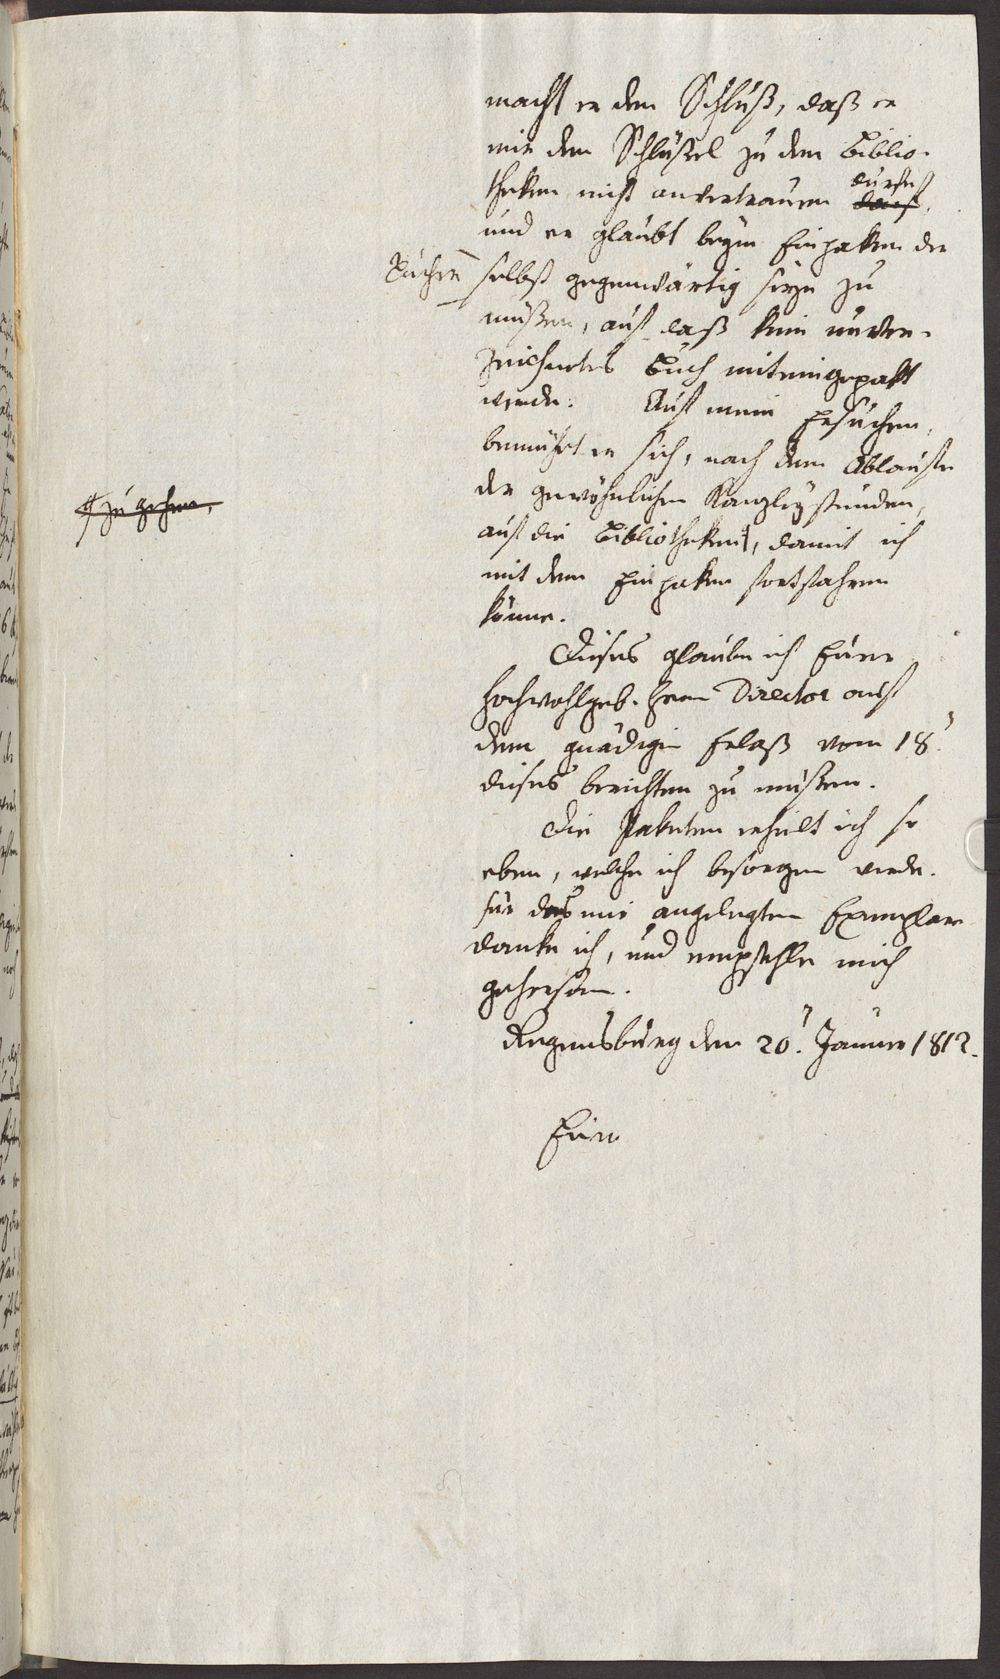 macht er den Schluß, daß er
mir den Schlüßel zu den Biblio-
theken nicht anvertrauen dürfe
darf,
und er glaubt beym Einpaken der
Bücher selbst gegenwärtig seyn zu
müßen, auf daß kein unver-
zeichnetes Buch miteingepakt
werde. Auf mein Ersuchen,
bemüht er sich, nach dem Ablaufe
der gewöhnlichen Kanzleystunden,
zu gehen,
auf die Bibliotheken, damit ich
mit dem Einpaken fortfahren
könne.
Dieses glaube ich Euer
Hochwohlgeb. Herrn Director auf
dem gnädigen Erlaß vom 18.
dieses berichten zu müßen.
Die Paketen erhielt ich so
eben, welche ich besorgen werde.
für das mir angelegten Exemplare
danke ich, und empfehle mich
gehorsam.
Regensburg den 20. Januar 1812.
Euer